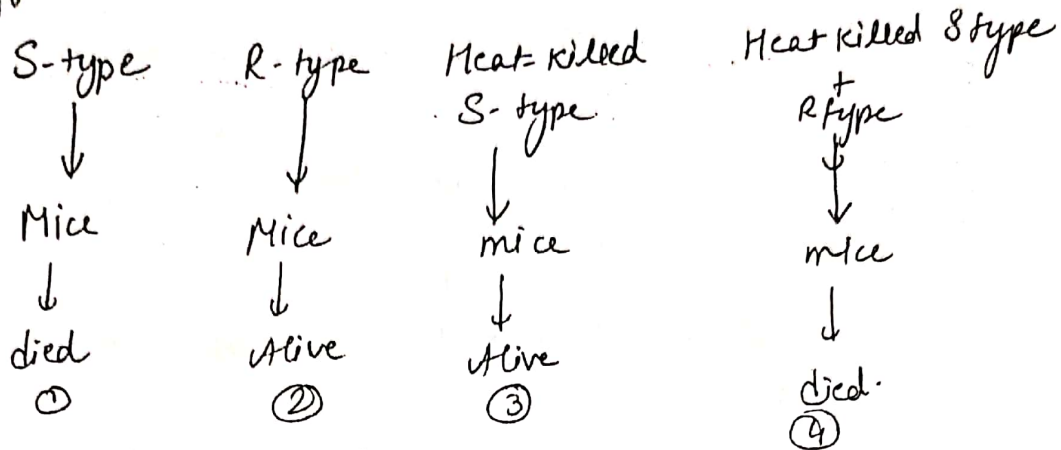 S-type
↓
Mice
↓
died
①
R-type
↓
Mice
↓
Alive
②
Heat-killed
S-type
↓
mice
↓
Alive
③
Heat killed S type
+
R type
↓
mice
↓
died.
④